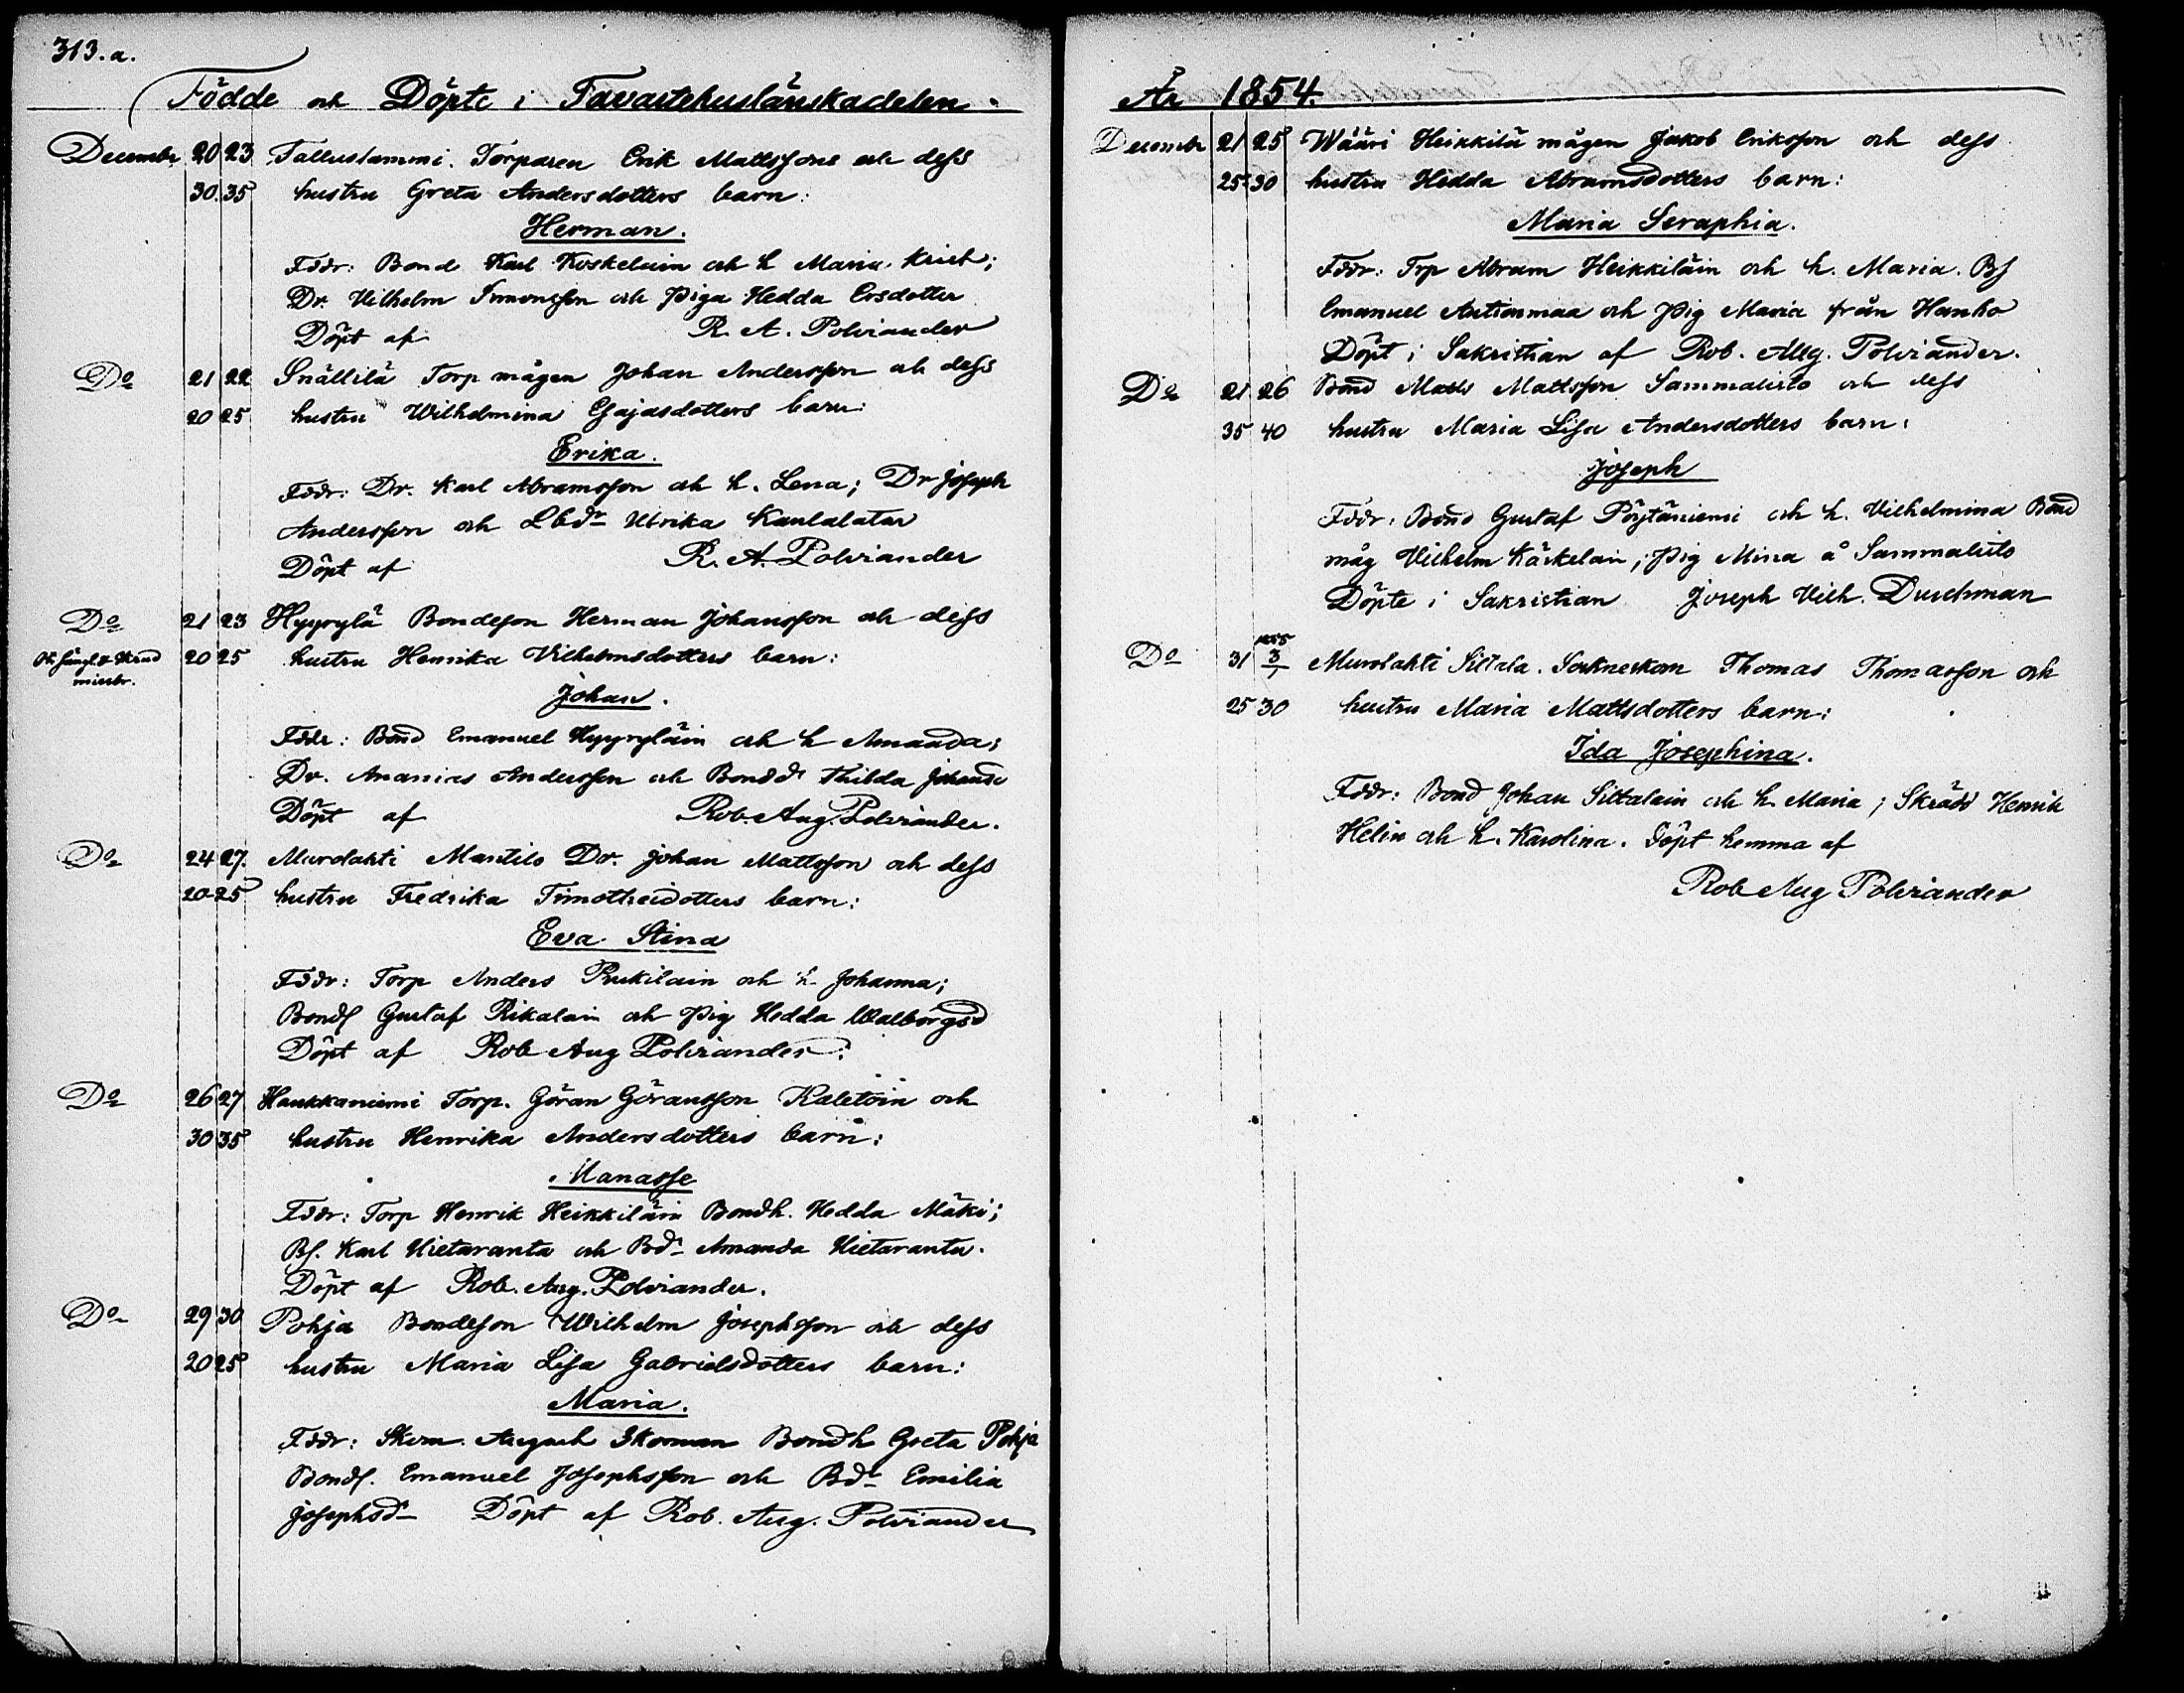 313.a.
Födde och Döpte i Tavastehuslänskadelen.
December 20 23 Tallustammi. Torparen Erik Mattssons och dess
30. 35 hustru Greta Andersdotters barn:
Herman.
Fddr: Bond Karl Koskelain och h Maria;
Dr. Vilhelm Simonsson och Piga Hedda Ersdotter
Döpt af R. A. Polviander
Do 21 22 Snällilä Torp mågen Johan Andersson och dess
20 25 hustru Wilhelmina Esajasdotters barn:
Erika.
Fddr: Dr. Karl Abramsson och h. Lena; Dr Joseph
Andersson och Lbdr Ulrika
Döpt af R. A. Polviander
Do 21 23 Hyyrylä Bondeson Herman Johansson och dess
20 25 hustru Henrika Vilhelmsdotters barn:
Johan.
Fddr: Bond Emanuel Hyyryläin och h Amanda;
Dr. Ananias Andersson och Bondd. Thilda Johansd
Döpt af Rob. Aug. Polviander.
Do 24 27. Murolahti Mantilo Dr. Johan Mattsson och dess
20-25 hustru Fredrika Timotheidotters barn:
Eva Stina
Fddr: Torp Anders Pukilain och h. Johanna;
Bonds Gustaf Rikalain och Pig Hedda Walborgsd
Döpt af Rob Aug Polviander.
Do 26 27 Haukkaniemi Torp. Göran Göransson Kaletoin och
30 35 hustru Henrika Andersdotters barn:
Manasse
Fddr: Torp Henrik Heikkiläin Bondh. Hedda Mäki;
Bs. Karl Hietaranta och Bdr Amanda Hietaranta.
Döpt af Rob. Aug. Polviander.
Do 29 30 Pohja Bondeson Wilhelm Josephsson och dess
20 25 hustru Maria Lisa Gabrielsdotters barn:
Maria.
Fddr: Skom. August Skoman Bondh Greta Pohja
Bonds. Emanuel Josephsson och Bdr Emilia
Josephsd. Döpt af Rob. Aug. Polviander
År 1854.
December 21 25 Wääri Heikkilä mågen Jakob Eriksson och dess
25-30 hustru Hedda Abramsdotters barn:
Maria Seraphia.
Fddr: Trp Abram Heikkiläin och h. Maria. Bs
Emanuel Autionmaa och Pig Maria från Hanho
Döpt i Sakristian af Rob. Aug. Polviander.
Do 21 26 Bond Matts Mattsson Sammalisto och dess
35 40 hustru Maria Lisa Andersdotters barn:
Joseph
Fddr: Bond Gustaf Pöytäniemi och h. Vilhelmina Bond
måg Vilhelm Kärkelain; Pig Mina å Sammalisto
Döpte i Sakristian Joseph Vilh. Duschman
Do 31 1855 3/1 Murolahti Siltala. Sockneskom Thomas Thomasson och
25 30 hustru Maria Mattsdotters barn:
Ida Josephina.
Fddr: Bond Johan Siltalain och h. Maria; Skrädd Henrik
Helin och h. Karolina. Döpt hemma af
Rob Aug Polviander